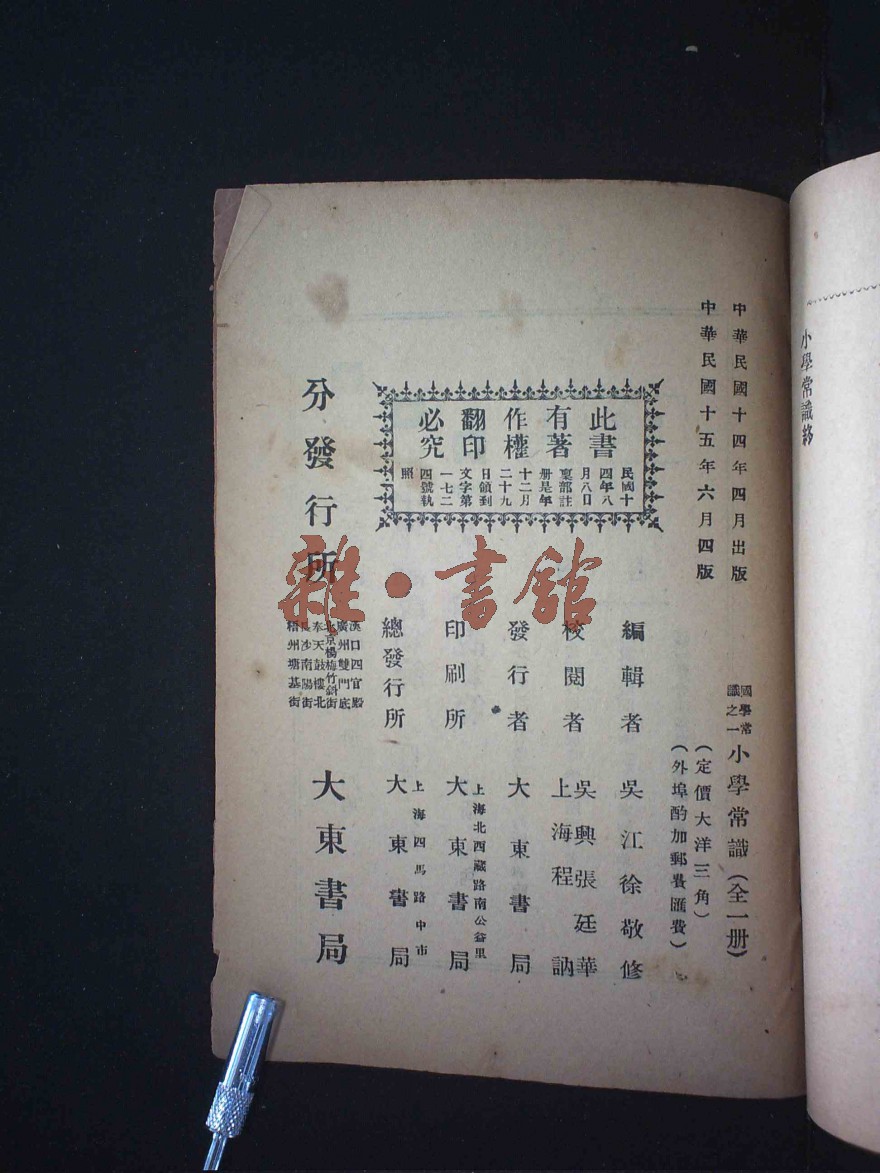 小學常識終
中華民國十四年四月出版
中華民國十五年六月四版
國學常識之一
小學常識(全一册)
(定價大洋三角)
(外埠酌加郵費匯費)
此書
有著
作權
翻印
必究
民國十
四年八
月八日
稟部註
册是年
十二月
二十九
日領到
文字第
一七二
四號執
照
編輯者 吳江徐敬修
校閱者 吳興張廷華
上海程訥
發行者 大東書局
印刷所 上海北西藏路南公益里
大東書局
總發行所 上海四馬路中市
大東書局
分發行所
漢口四官殿
廣州雙門底
北京楊梅竹斜街
奉天鼓樓北
長沙南陽街
梧州塘基街
大東書局
雜·書館